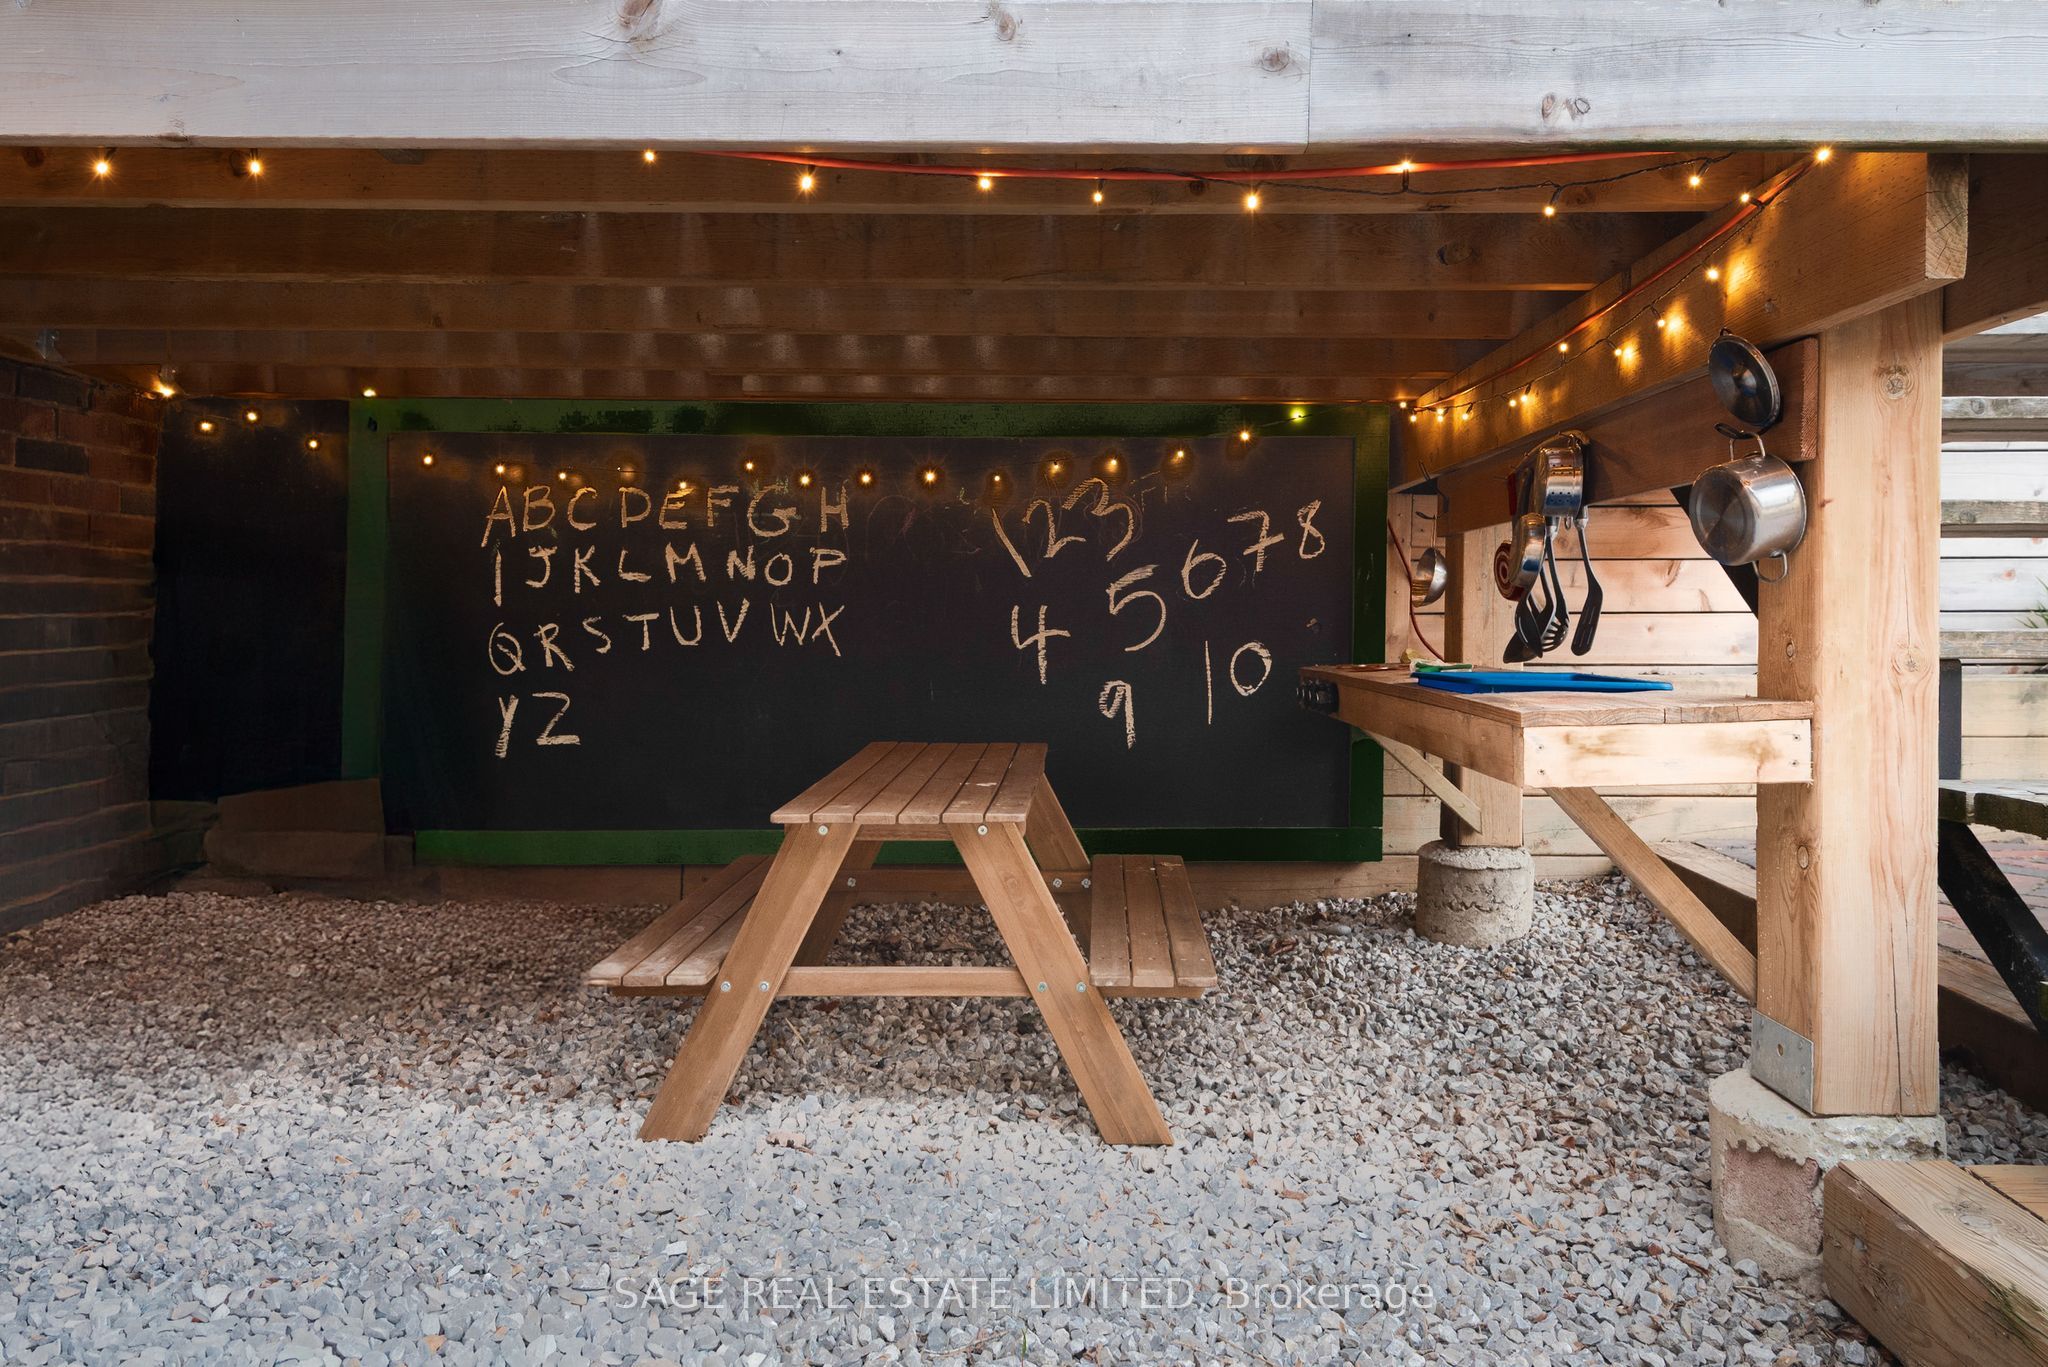 ABCDEFGH
IJKLMNOP
QRSTUVWX
YZ
123
4 5 6 7 8
9 10
SAGE REAL ESTATE LIMITED, Brokerage